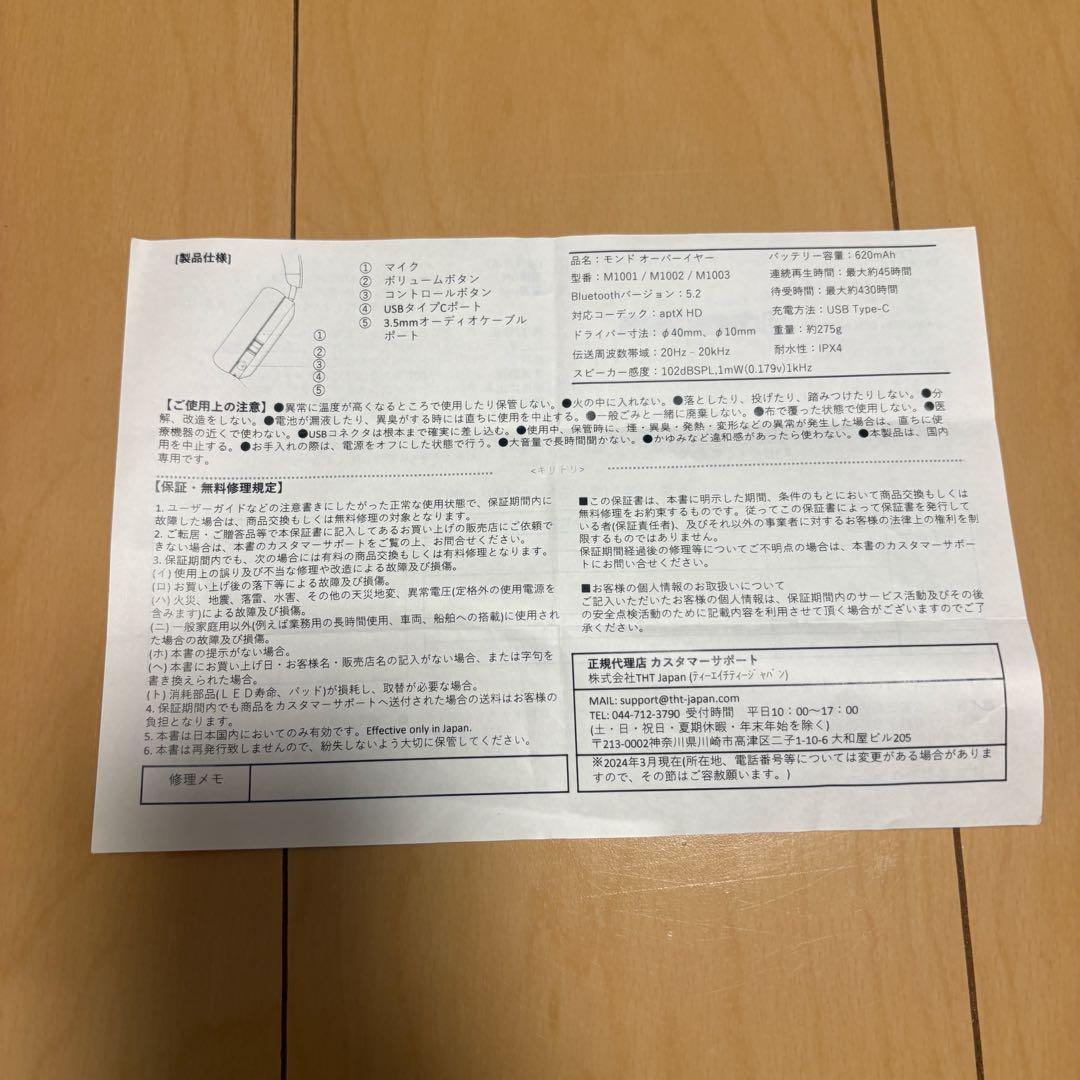 [製品仕様]
① マイク
② ボリュームボタン
③ コントロールボタン
④ USBタイプCポート
⑤ 3.5mmオーディオケーブル
ポート
①
②
③
④
⑤
品名：モンド オーバーイヤー
型番：M1001 / M1002 / M1003
Bluetoothバージョン：5.2
対応コーデック：aptX HD
ドライバー寸法：φ40mm、φ10mm
伝送周波数帯域：20Hz‐20kHz
スピーカー感度：102dBSPL,1mW(0.179v)1kHz
バッテリー容量：620mAh
連続再生時間：最大約45時間
待受時間：最大約430時間
充電方法：USB Type-C
重量：約275g
耐水性：IPX4
【ご使用上の注意】●異常に温度が高くなるところで使用したり保管しない。●火の中に入れない。●落としたり、投げたり、踏みつけたりしない。●分
解、改造をしない。●電池が漏液したり、異臭がする時には直ちに使用を中止する。●一般ごみと一緒に廃棄しない。●布で覆った状態で使用しない。●医
療機器の近くで使わない。●USBコネクタは根本まで確実に差し込む。●使用中、保管時に、煙・異臭・発熱・変形などの異常が発生した場合は、直ちに使
用を中止する。●お手入れの際は、電源をオフにした状態で行う。●大音量で長時間聞かない。●かゆみなど違和感があったら使わない。●本製品は、国内
専用です。
<キリトリ>
【保証・無料修理規定】
1. ユーザーガイドなどの注意書きにしたがった正常な使用状態で、保証期間内に
故障した場合は、商品交換もしくは無料修理の対象となります。
2. ご転居・ご贈答品等で本保証書に記入してあるお買い上げの販売店にご依頼で
きない場合は、本書のカスタマーサポートをご覧の上、お問合せください。
3. 保証期間内でも、次の場合には有料の商品交換もしくは有料修理となります。
(イ) 使用上の誤り及び不当な修理や改造による故障及び損傷。
(ロ) お買い上げ後の落下等による故障及び損傷。
(ハ) 火災、地震、落雷、水害、その他の天災地変、異常電圧(定格外の使用電源を
含みます)による故障及び損傷。
(ニ) 一般家庭用以外(例えば業務用の長時間使用、車両、船舶への搭載)に使用され
た場合の故障及び損傷。
(ホ) 本書の提示がない場合。
(ヘ) 本書にお買い上げ日・お客様名・販売店名の記入がない場合、または字句を
書き換えられた場合。
(ト) 消耗部品(ＬＥＤ寿命、パッド)が損耗し、取替が必要な場合。
4. 保証期間内でも商品をカスタマーサポートへ送付された場合の送料はお客様の
負担となります。
5. 本書は日本国内においてのみ有効です。Effective only in Japan.
6. 本書は再発行致しませんので、紛失しないよう大切に保管してください。
修理メモ
■この保証書は、本書に明示した期間、条件のもとにおいて商品交換もしくは
無料修理をお約束するものです。従ってこの保証書によって保証書を発行して
いる者(保証責任者)、及びそれ以外の事業者に対するお客様の法律上の権利を制
限するものではありません。
保証期間経過後の修理等についてご不明点の場合は、本書のカスタマーサポー
トにお問い合せください。
■お客様の個人情報のお取扱いについて
ご記入いただいたお客様の個人情報は、保証期間内のサービス活動及びその後
の安全点検活動のために記載内容を利用させて頂く場合がございますのでご了
承ください。
正規代理店 カスタマーサポート
株式会社THT Japan (ﾃｨｰｴｲﾁﾃｨｰｼﾞｬﾊﾟﾝ)
MAIL: support@tht-japan.com
TEL: 044-712-3790 受付時間 平日10：00～17：00
(土・日・祝日・夏期休暇・年末年始を除く)
〒213-0002神奈川県川崎市高津区二子1-10-6 大和屋ビル205
※2024年3月現在(所在地、電話番号等については変更がある場合がありま
すので、その節はご容赦願います。)